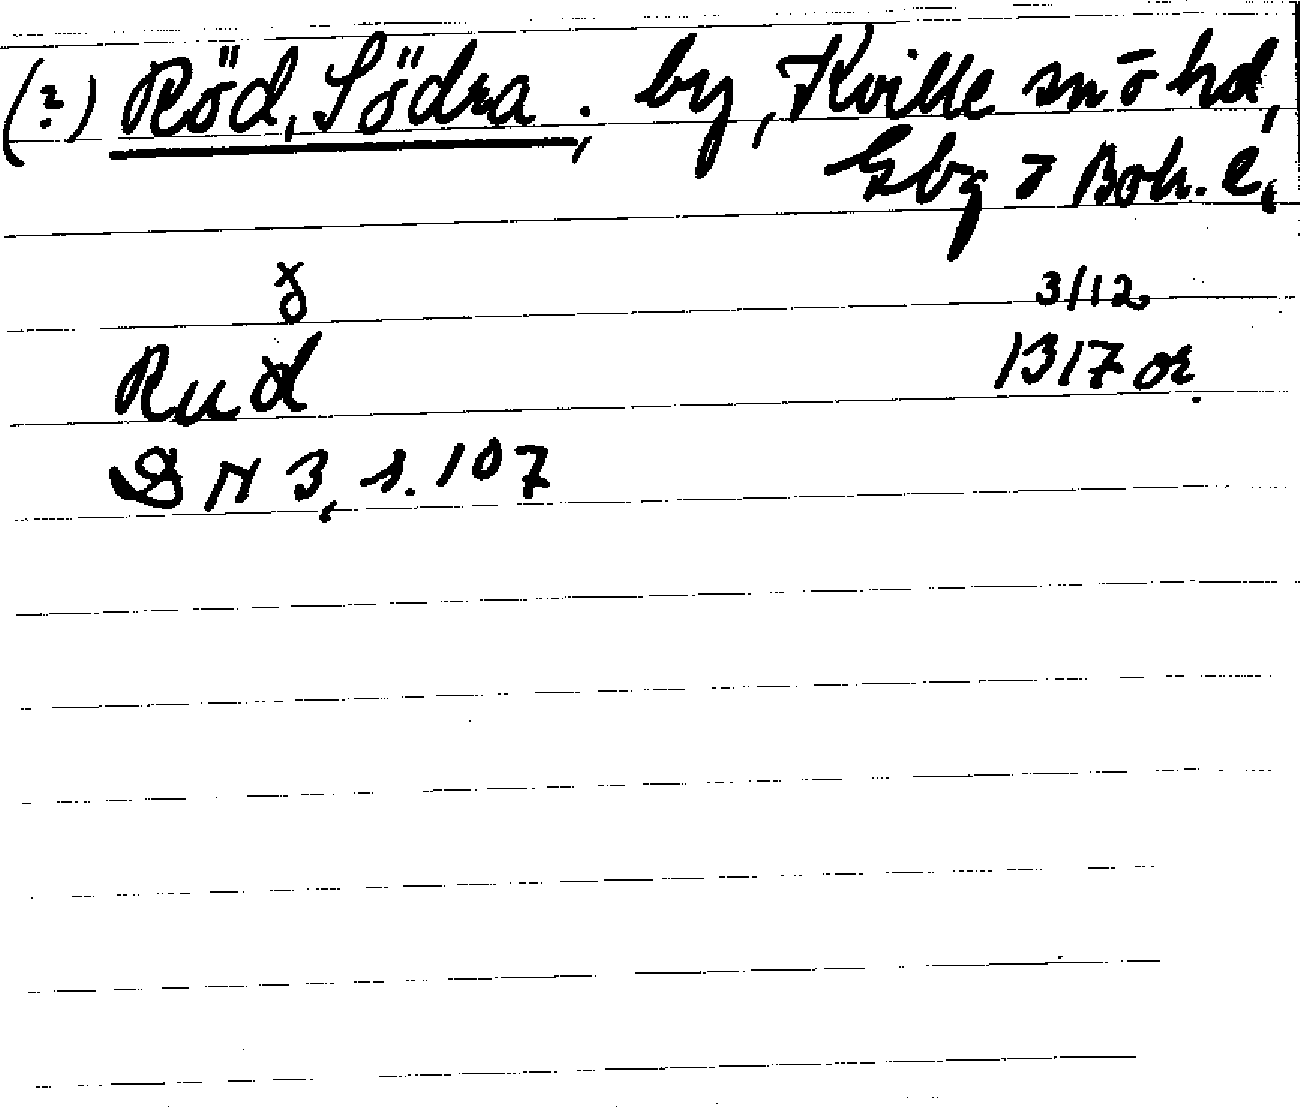 (?) Röd, Södra; by, Kville sn o hd,
Gbg o Boh. l.
3/12
Rud 1317 or.
DN 3, s. 107